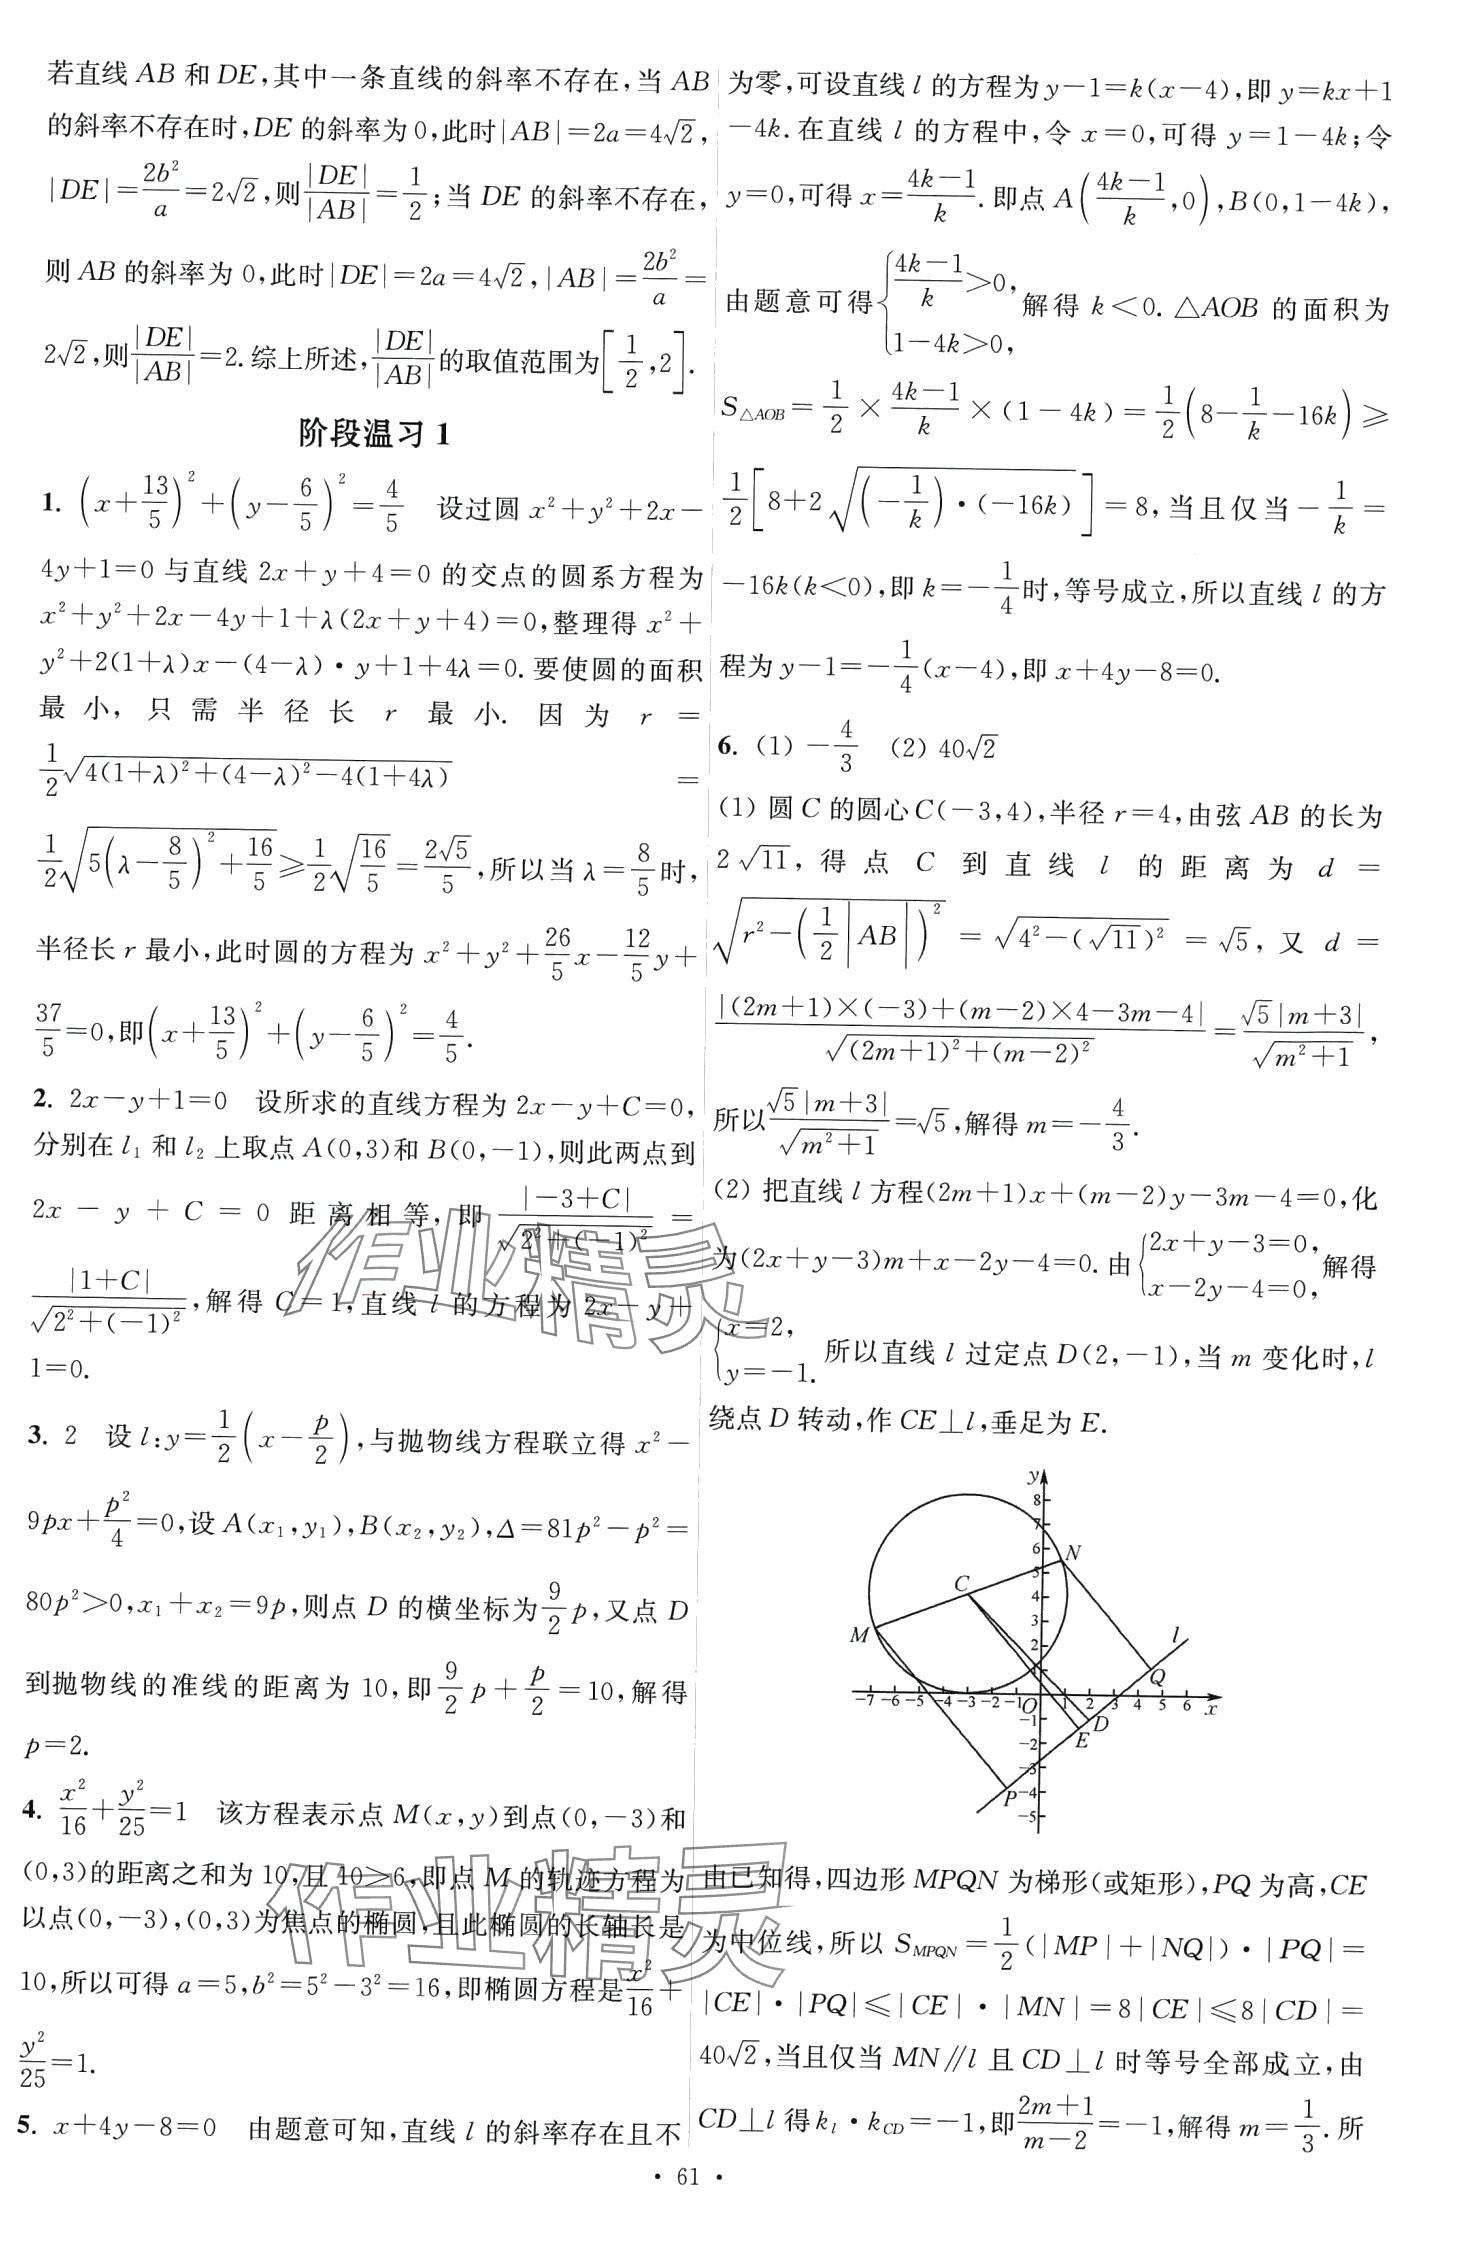 若直线 AB 和 DE,其中一条直线的斜率不存在,当 AB
的斜率不存在时,DE 的斜率为 0,此时|AB|=2a=4√2,
|DE|=2b²/a=2√2,则|DE|/|AB|=1/2;当 DE 的斜率不存在,
则 AB 的斜率为 0,此时|DE|=2a=4√2,|AB|=2b²/a=
2√2,则|DE|/|AB|=2.综上所述,|DE|/|AB|的取值范围为[1/2,2].
阶段温习 1
1. (x+13/5)²+(y-6/5)²=4/5 设过圆 x²+y²+2x-
4y+1=0 与直线 2x+y+4=0 的交点的圆系方程为
x²+y²+2x-4y+1+λ(2x+y+4)=0,整理得 x²+
y²+2(1+λ)x-(4-λ)·y+1+4λ=0.要使圆的面积
最小,只需半径长 r 最小.因为 r=
1/2√(4(1+λ)²+(4-λ)²-4(1+4λ)) =
1/2√(5(λ-8/5)²+16/5)≥1/2√(16/5)=2√5/5,所以当 λ=8/5时,
半径长 r 最小,此时圆的方程为 x²+y²+26/5x-12/5y+
37/5=0,即(x+13/5)²+(y-6/5)²=4/5.
2. 2x-y+1=0 设所求的直线方程为 2x-y+C=0,
分别在 l₁ 和 l₂ 上取点 A(0,3)和 B(0,-1),则此两点到
2x-y+C=0 距离相等,即|-3+C|/√(2²+(-1)²)=
|1+C|/√(2²+(-1)²),解得 C=1,直线 l 的方程为 2x-y+
1=0.
3. 2 设 l:y=1/2(x-p/2),与抛物线方程联立得 x²-
9px+p²/4=0,设 A(x₁,y₁),B(x₂,y₂),Δ=81p²-p²=
80p²>0,x₁+x₂=9p,则点 D 的横坐标为9/2p,又点 D
到抛物线的准线的距离为 10,即9/2p+p/2=10,解得
p=2.
4. x²/16+y²/25=1 该方程表示点 M(x,y)到点(0,-3)和
(0,3)的距离之和为 10,且 10>6,即点 M 的轨迹方程为
以点(0,-3),(0,3)为焦点的椭圆,且此椭圆的长轴长是
10,所以可得 a=5,b²=5²-3²=16,即椭圆方程是x²/16+
y²/25=1.
5. x+4y-8=0 由题意可知,直线 l 的斜率存在且不
为零,可设直线 l 的方程为 y-1=k(x-4),即 y=kx+1
-4k.在直线 l 的方程中,令 x=0,可得 y=1-4k;令
y=0,可得 x=4k-1/k.即点 A(4k-1/k,0),B(0,1-4k),
由题意可得{4k-1/k>0, 1-4k>0, 解得 k<0.△AOB 的面积为
S△AOB=1/2×4k-1/k×(1-4k)=1/2(8-1/k-16k)≥
1/2[8+2√((-1/k)·(-16k))]=8,当且仅当-1/k=
-16k(k<0),即 k=-1/4时,等号成立,所以直线 l 的方
程为 y-1=-1/4(x-4),即 x+4y-8=0.
6. (1) -4/3 (2) 40√2
(1) 圆 C 的圆心 C(-3,4),半径 r=4,由弦 AB 的长为
2√11,得点 C 到直线 l 的距离为 d=
√(r²-(1/2|AB|)²)=√(4²-(√11)²)=√5,又 d=
|(2m+1)×(-3)+(m-2)×4-3m-4|/√((2m+1)²+(m-2)²)=√5|m+3|/√(m²+1),
所以√5|m+3|/√(m²+1)=√5,解得 m=-4/3.
(2) 把直线 l 方程(2m+1)x+(m-2)y-3m-4=0,化
为(2x+y-3)m+x-2y-4=0.由{2x+y-3=0, x-2y-4=0, 解得
{x=2, y=-1. 所以直线 l 过定点 D(2,-1),当 m 变化时,l
绕点 D 转动,作 CE⊥l,垂足为 E.
y
8
7
6
5
4
3
2
1
N
C
M
l
Q
-7 -6 -5 -4 -3 -2 -1 O 1 2 3 4 5 6 x
-1
-2
-3
-4
-5
D
E
P
由已知得,四边形 MPQN 为梯形(或矩形),PQ 为高,CE
为中位线,所以 S_MPQN=1/2(|MP|+|NQ|)·|PQ|=
|CE|·|PQ|≤|CE|·|MN|=8|CE|≤8|CD|=
40√2,当且仅当 MN∥l 且 CD⊥l 时等号全部成立,由
CD⊥l 得 k_l·k_CD=-1,即2m+1/m-2=-1,解得 m=1/3.所
·61·
作业精灵
作业精灵